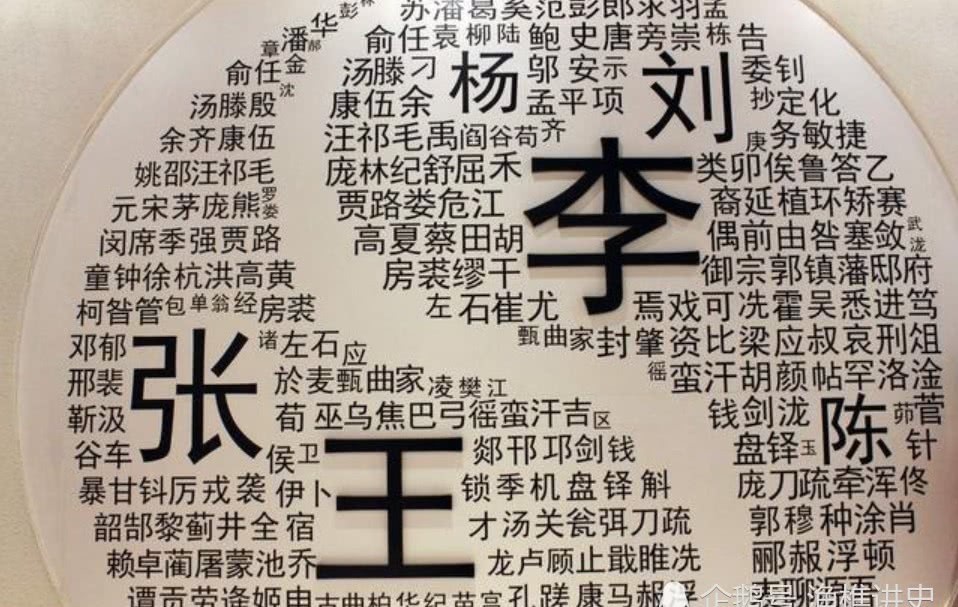 苏潘葛奚范彭郎
华
潘
章
俞任袁柳陆鲍史唐旁崇栋告
俞任金
汤滕刁
杨
邬安示
刘
委钊
沈
汤滕殷
康伍余
孟平项
抄定化
余齐康伍
汪祁毛禹阎谷苟齐
庚务敏捷
姚邵汪祁毛
庞林纪舒屈禾
李
类卯俟鲁答乙
元宋茅庞熊罗娄
贾路娄危江
裔延植环矫赛
闵席季强贾路
高夏蔡田胡
偶前由昝塞敛武泷
童钟徐杭洪高黄
房裘缪干
御宗郭镇藩邸府
柯昝管包单翁经房裘
左石崔尤
焉戏可冼霍吴悉进笃
邓郁
张
诸左石应
甄曲家封肇资比梁应叔哀刑俎
邢裴
於麦甄曲家凌樊江
徭蛮汗胡颜帖罕洛淦
靳汲
荀巫乌焦巴弓徭蛮汗吉区
钱剑泷
陈
茆菅
谷车
侯卫
王
郯邗邛剑钱
盘铎玉
针
暴甘钭厉戎袭伊卜
锁季机盘铎斛
庞刀疏牵浑佟
韶郜黎蓟井全宿
才汤关瓮弭刀疏
郭穆种涂肖
赖卓蔺屠蒙池乔
龙卢顾止戢睢冼
郦赧浮顿
谭贡劳逄姬申古曲柏华纪苗宫孔蹉康马赧浮